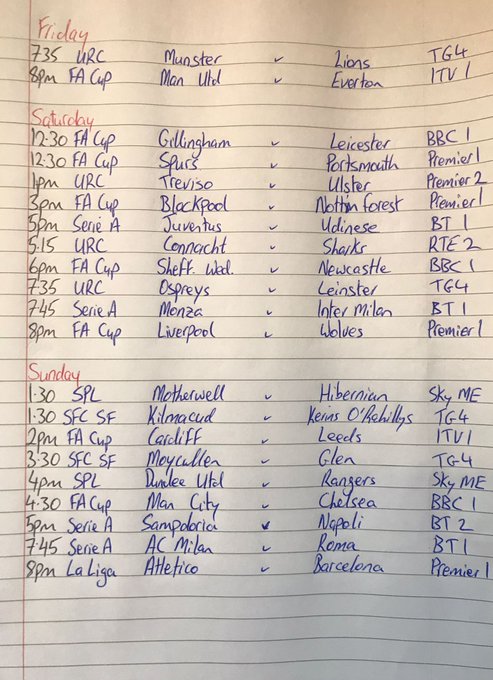 Friday
7.35 URC Munster v Lions TG4
8pm FA Cup Man Utd v Everton ITV 1
Saturday
12:30 FA Cup Gillingham v Leicester BBC 1
12:30 FA Cup Spurs v Portsmouth Premier 1
1pm URC Treviso v Ulster Premier 2
3pm FA Cup Blackpool v Nottm Forest Premier 1
5pm Serie A Juventus v Udinese BT 1
5.15 URC Connacht v Sharks RTE 2
6pm FA Cup Sheff. Wed. v Newcastle BBC 1
7.35 URC Ospreys v Leinster TG4
7.45 Serie A Monza v Inter Milan BT 1
8pm FA Cup Liverpool v Wolves Premier 1
Sunday
1.30 SPL Motherwell v Hibernian Sky ME
1.30 SFC SF Kilmacud v Kerins O'Rahillys TG4
2pm FA Cup Cardiff v Leeds ITV 1
3.30 SFC SF Moycullen v Glen TG4
4pm SPL Dundee Utd v Rangers Sky ME
4.30 FA Cup Man City v Chelsea BBC 1
5pm Serie A Sampdoria v Napoli BT 2
7.45 Serie A AC Milan v Roma BT 1
8pm La Liga Atletico v Barcelona Premier 1